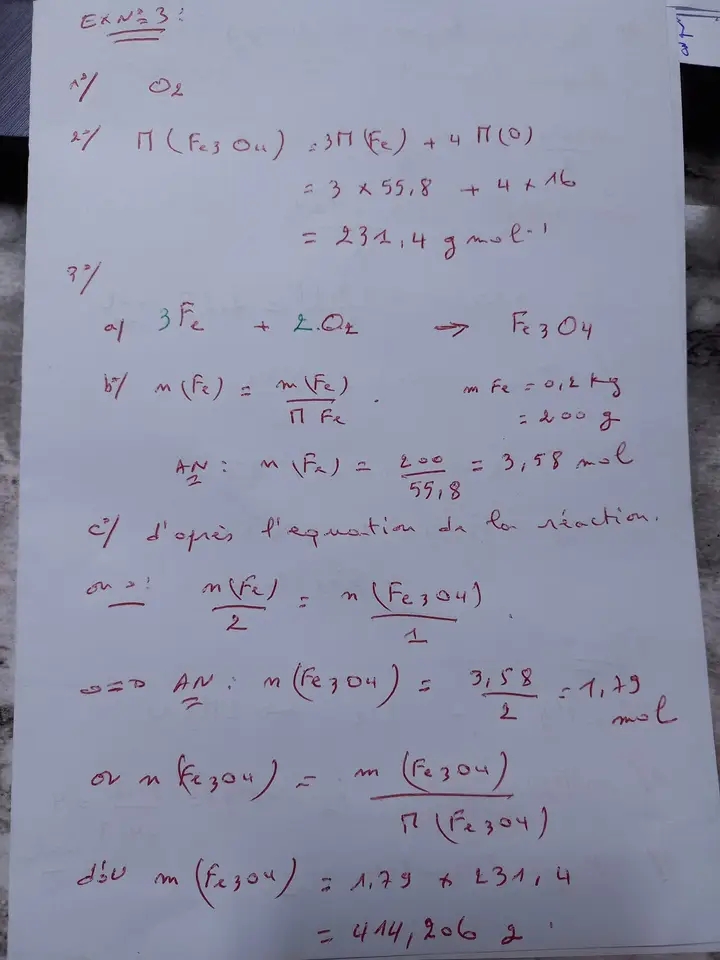 Ex N° 3:
1°/ O2
2°/ Π(Fe3O4) = 3Π(Fe) + 4 Π(O)
= 3 × 55,8 + 4 × 16
= 231,4 g mol-1
3°/
a/ 3Fe + 2.O2 → Fe3O4
b°/ n(Fe) = m(Fe) / Π Fe . m Fe = 0,2 kg
= 200 g
AN: n(Fe) = 200 / 55,8 = 3,58 mol
c°/ d'après l'equation de la réaction.
on a: n(Fe) / 2 = n(Fe3O4) / 1 .
==> AN: n(Fe3O4) = 3,58 / 2 = 1,79 mol
or n(Fe3O4) = m(Fe3O4) / Π(Fe3O4)
d'où m(Fe3O4) = 1,79 × 231,4
= 414,206 g.